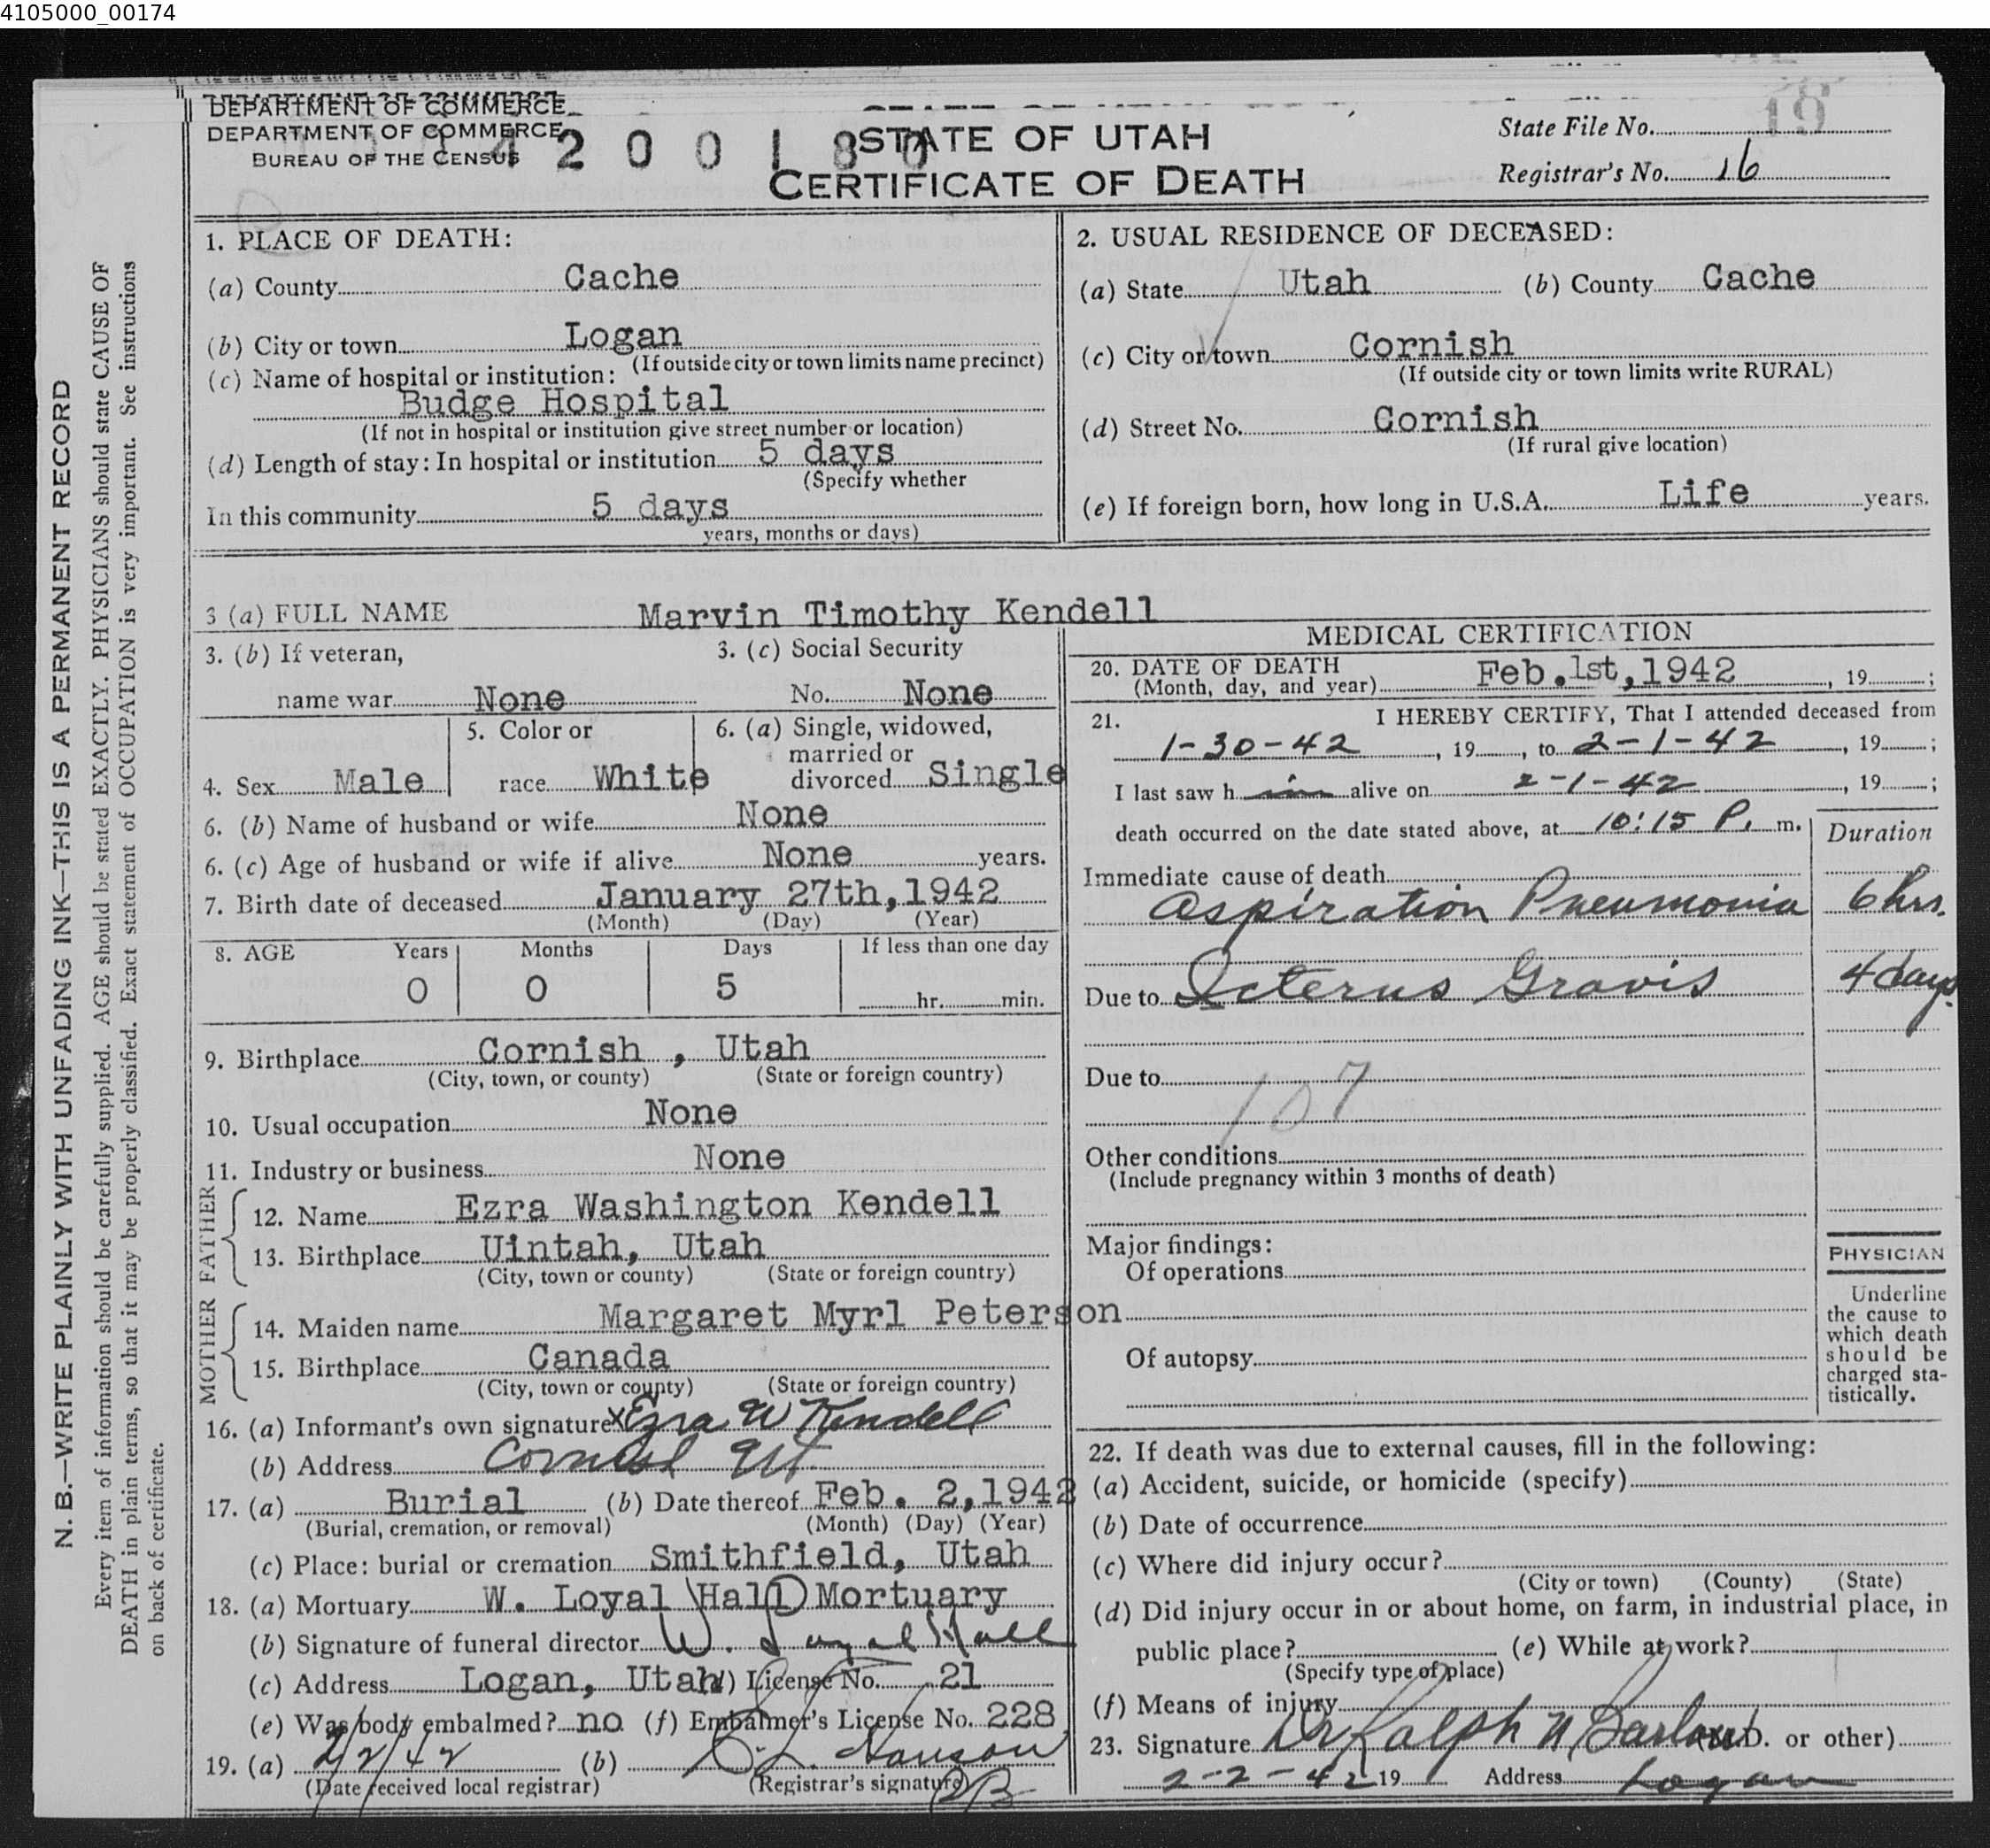 4105000_00174
DEPARTMENT OF COMMERCE
DEPARTMENT OF COMMERCE
BUREAU OF THE CENSUS
4 2 0 0 1 8 0
STATE OF UTAH
CERTIFICATE OF DEATH
State File No. 19
Registrar's No. 16
N. B.—WRITE PLAINLY WITH UNFADING INK—THIS IS A PERMANENT RECORD
Every item of information should be carefully supplied. AGE should be stated EXACTLY. PHYSICIANS should state CAUSE OF
DEATH in plain terms, so that it may be properly classified. Exact statement of OCCUPATION is very important. See instructions
on back of certificate.
1. PLACE OF DEATH:
(a) County Cache
(b) City or town Logan
(If outside city or town limits name precinct)
(c) Name of hospital or institution:
Budge Hospital
(If not in hospital or institution give street number or location)
(d) Length of stay: In hospital or institution 5 days
(Specify whether
In this community 5 days
years, months or days)
2. USUAL RESIDENCE OF DECEASED:
(a) State Utah (b) County Cache
(c) City or town Cornish
(If outside city or town limits write RURAL)
(d) Street No. Cornish
(If rural give location)
(e) If foreign born, how long in U.S.A. Life years.
3 (a) FULL NAME Marvin Timothy Kendell
3. (b) If veteran, 3. (c) Social Security
name war None No. None
4. Sex Male 5. Color or race White 6. (a) Single, widowed, married or divorced Single
6. (b) Name of husband or wife None
6. (c) Age of husband or wife if alive None years.
7. Birth date of deceased January 27th, 1942
(Month) (Day) (Year)
8. AGE Years Months Days If less than one day
0 0 5 hr. min.
9. Birthplace Cornish , Utah
(City, town, or county) (State or foreign country)
10. Usual occupation None
11. Industry or business None
FATHER
12. Name Ezra Washington Kendell
13. Birthplace Uintah, Utah
(City, town or county) (State or foreign country)
MOTHER
14. Maiden name Margaret Myrl Peterson
15. Birthplace Canada
(City, town or county) (State or foreign country)
16. (a) Informant's own signature x Ezra W Kendell
(b) Address Cornish Ut.
17. (a) Burial (b) Date thereof Feb. 2, 1942
(Burial, cremation, or removal) (Month) (Day) (Year)
(c) Place: burial or cremation Smithfield, Utah
18. (a) Mortuary W. Loyal Hall Mortuary
(b) Signature of funeral director W. Loyal Hall
(c) Address Logan, Utah (d) License No. 21
(e) Was body embalmed? no (f) Embalmer's License No. 228
19. (a) 2/2/42 (b) Hanson
(Date received local registrar) (Registrar's signature)
MEDICAL CERTIFICATION
20. DATE OF DEATH
(Month, day, and year) Feb. 1st, 1942, 19 ;
21. I HEREBY CERTIFY, That I attended deceased from
1-30-42, 19 , to 2-1-42, 19 ;
I last saw h im alive on 2-1-42, 19 ;
death occurred on the date stated above, at 10:15 P. m.
Duration
Immediate cause of death
Aspiration Pneumonia 6 hrs.
Due to Icterus Gravis 4 days
Due to
107
Other conditions
(Include pregnancy within 3 months of death)
Major findings:
Of operations
Of autopsy
PHYSICIAN
Underline
the cause to
which death
should be
charged sta-
tistically.
22. If death was due to external causes, fill in the following:
(a) Accident, suicide, or homicide (specify)
(b) Date of occurrence
(c) Where did injury occur?
(City or town) (County) (State)
(d) Did injury occur in or about home, on farm, in industrial place, in
public place? (e) While at work?
(Specify type of place)
(f) Means of injury
23. Signature Dr Ralph N Barlow (M.D. or other)
2-2-42 19 Address Logan